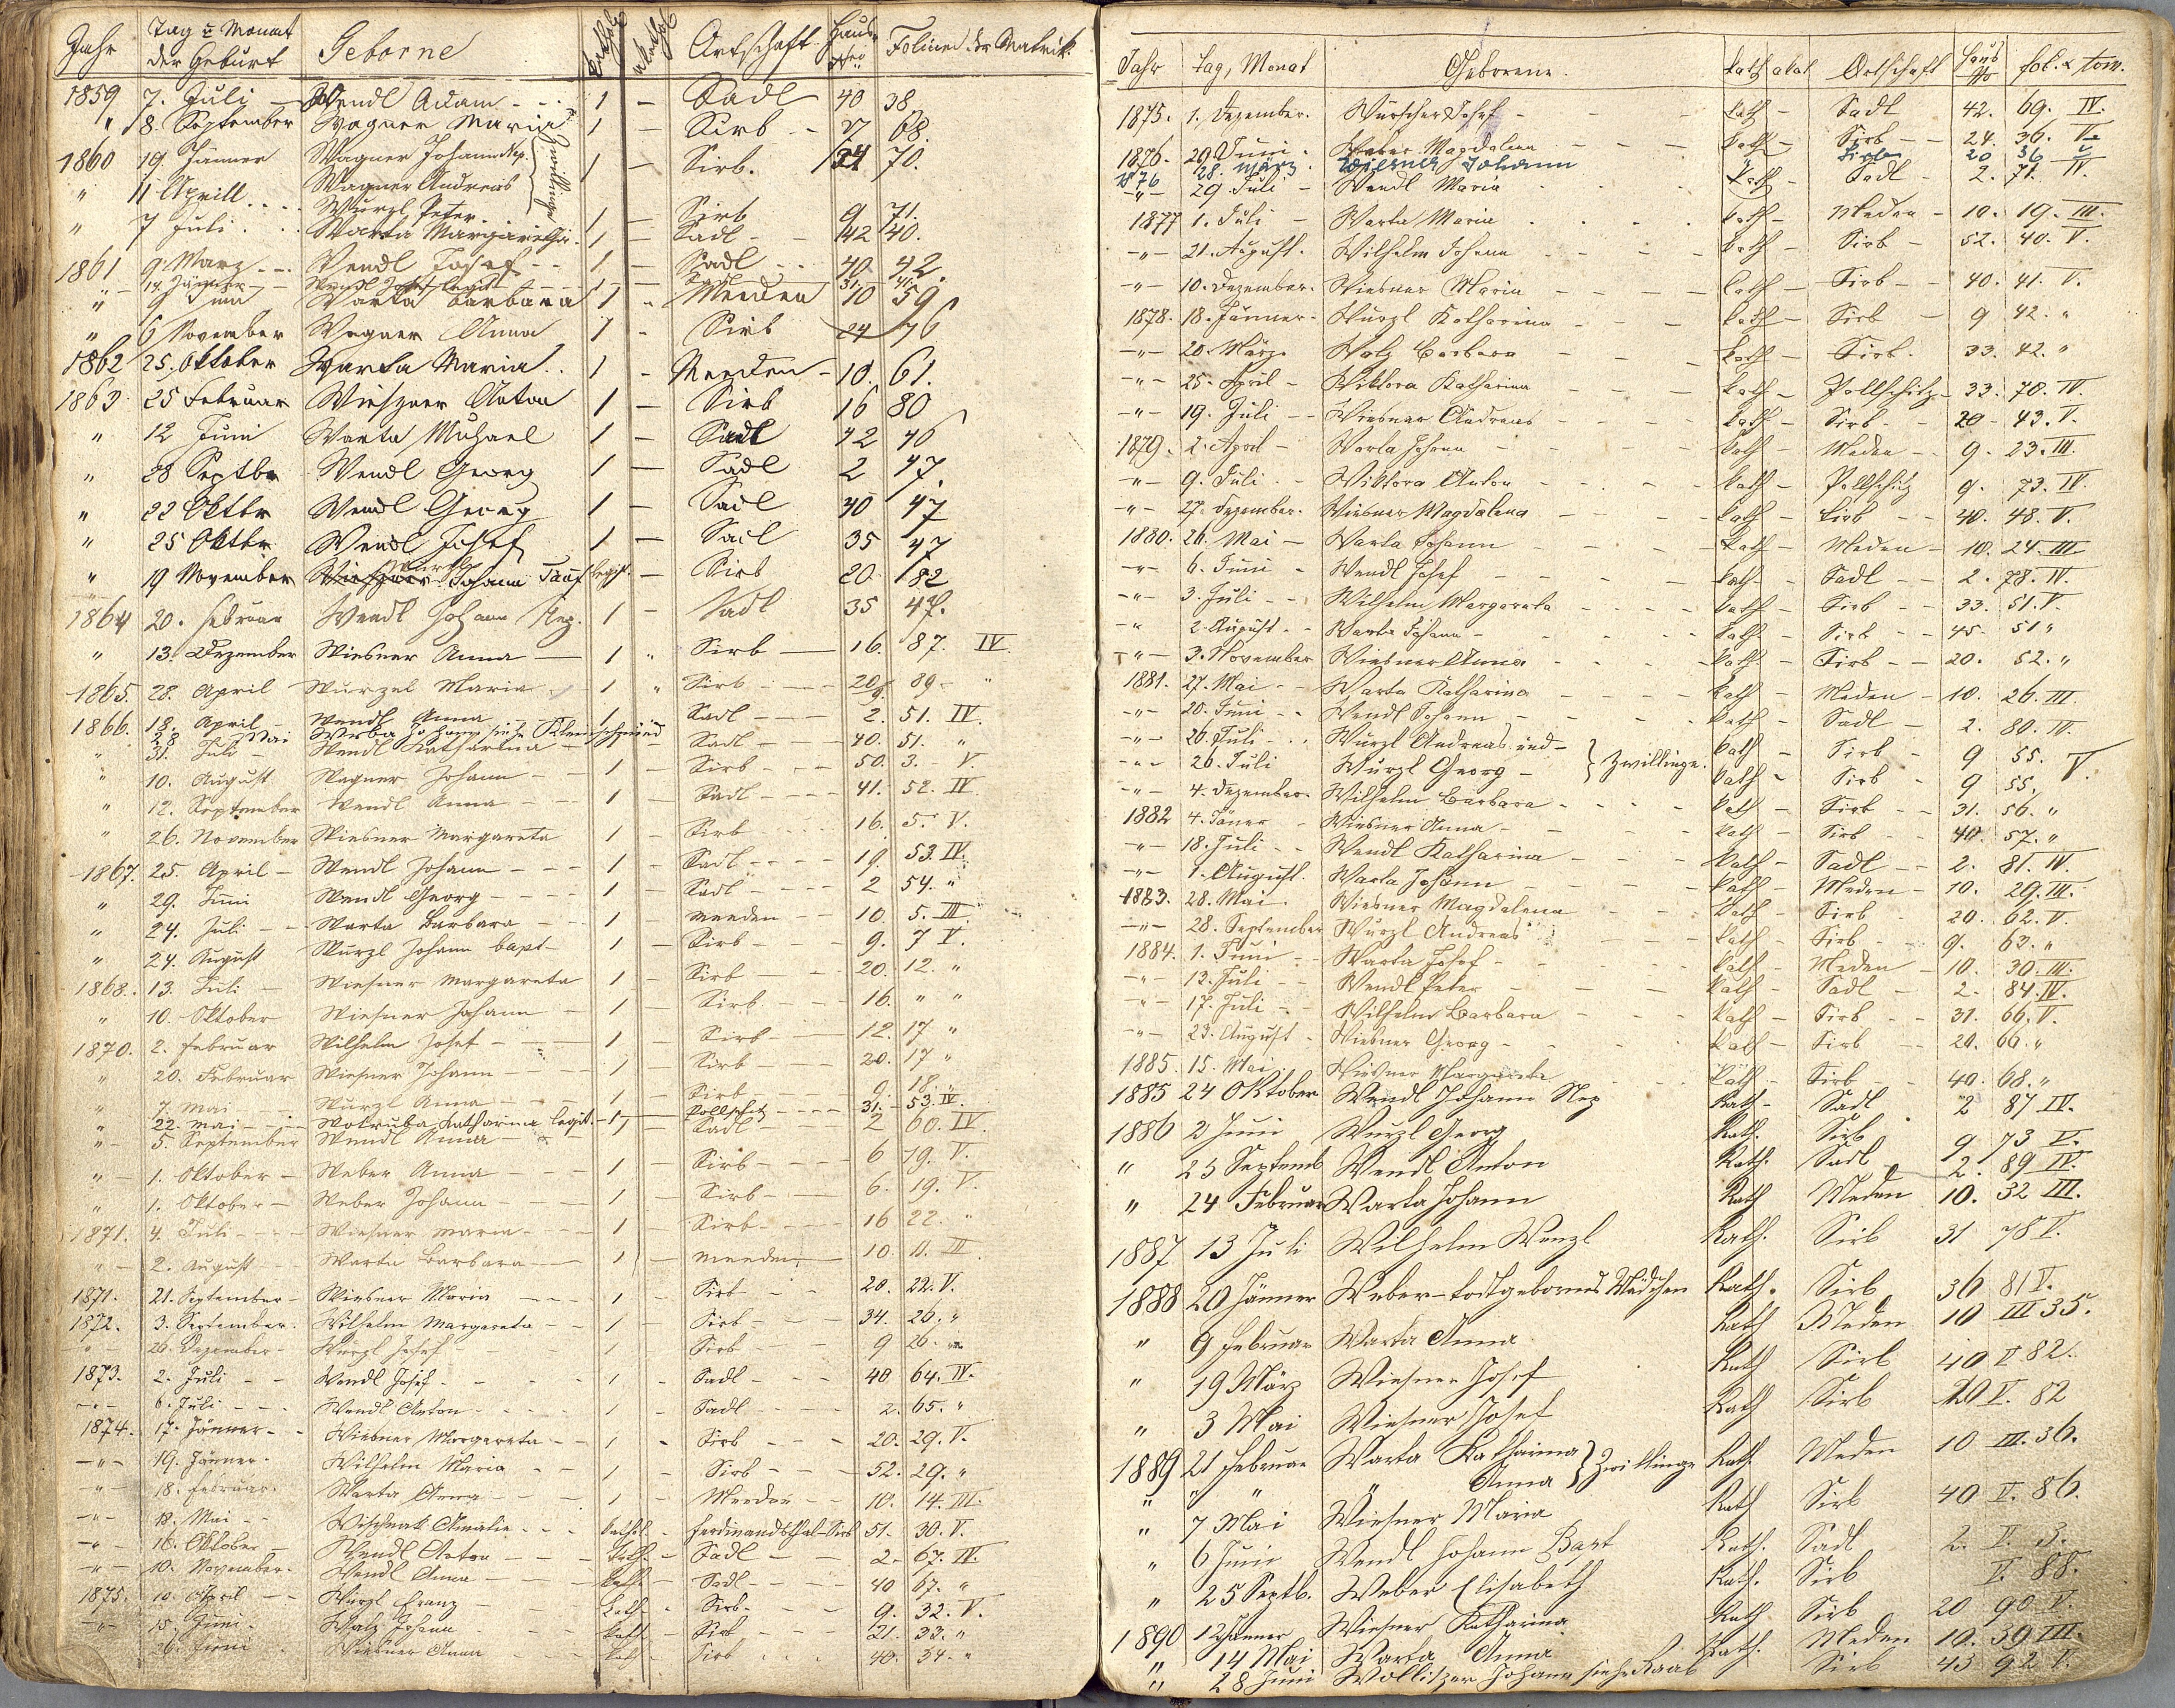 Jahr Tag u Monat der Geburt Geborne kathol akathol Ortschaft Haus Nro Folium der Matrik
1859 7. Juli Wendl Adam 1 – Sadl 40 38
" 8. September Wagner Maria 1 – Sirb 27 68.
1860 19. Jänner Wagner Johann Nep. Wagner Andreas } Zwillinge 1 – Sirb. 34 70.
" 11 Aprill Wurzl Peter 1 – Sirb 9 71.
" 7 Juli Warta Margaretha 1 – Sadl 42 40.
1861 9. März Wendl Josef 1 – Sadl 40 42.
" 14. Jänner Wendl Josef legit 1 – Sadl 31
" 9 Juni Warta Barbara 1 " Meeden 10 59
" 6 November Wagner Anna 1 - Sirb 24 76
1862 25. Oktober Warta Maria 1 - Meeden - 10. 61.
1863 25 Februar Wieszner Anton 1 – Sirb 16 80
" 12 Juni Warta Michael 1 – Sadl 42 46
" 28 Septbr Wendl Georg 1 – Sadl 2 47.
" 22 Oktbr Wendl Georg 1 – Sadl 40 47
" 25 Oktbr Wendl Josef 1 – Sadl 35 47
" 19 November Wieszner Johann Taufregist. – Sirb 20 82
1864 20. Februar Wendl Johann Nep. 1 – Sadl 35 48.
" 13. Dezember Wiesner Anna 1 " Sirb 16. 87. IV.
1865. 28. April Wurzel Maria 1 " Sirb 20/9. 89 "
1866. 18. April Wendl Anna 1 Sadl 2. 51. IV.
28 Mai Werba Johann siehe Kleinschmied
" 31. Juli Wendl Katharina Sadl 40. 51. "
" 10. August Wagner Johann 1 Sirb 50. 3. V.
" 12. September Wendl Anna 1 Sadl 41. 52. IV.
" 26. November Wiesner Margareta 1 Sirb 16. 5. V.
1867. 25. April Wendl Johann 1 Sadl 19. 53. IV.
" 29. Juni Wendl Georg 1 Sadl 2 54. "
" 24. Juli Warta Barbara 1 Meeden 10. 5. III.
" 24. August Wurzl Johann bapt 1 Sirb 9. 7 V.
1868. 13. Juli Wiesner Margareta 1 Sirb 20. 12. "
" 10. Oktober Wiesner Johann 1 Sirb 16. " "
1870. 2. Februar Wilhelm Josef 1 Sirb 12. 17 "
" 20. Februar Wiesner Johann 1 Sirb 20. 17 "
" 7. Mai Wurzl Anna 1 Sirb 9. 18. "
" 22. Mai Wotruba Katharina legit. 1 Pollschitz 31. 53. IV.
" 5. September Wendl Anna 1 Sadl 2 60. IV.
" 1. Oktober Weber Anna 1 Sirb 6 19. V.
" 1. Oktober Weber Johann 1 Sirb 6. 19. V.
1871. 4. Juli Wiesner Maria 1 Sirb 16 22. "
" 2. August Warta Barbara 1 Meeden 10. 11. III.
1871. 21. September Wiesner Maria 1 Sirb 20. 22. V.
1872. 3. September. Wilhelm Margareta 1 Sirb 34. 26. "
" 26. Dezember Wurzl Josef 1 Sirb 9 26. "
1873. 2. Juli Wendl Josef 1 Sadl 40 64. IV.
" 6. Juli Wendl Anton 1 Sadl 2. 65. "
1874. 17. Jänner Wiesner Margareta 1 Sirb 20. 29. V.
" 19. Jänner Wilhelm Maria 1 Sirb 52. 29. "
" 18. Februar. Warta Anna 1 Meeden 10. 14. III.
" 18. Mai Wischnak Amalie kathol. Ferdinandsthal-Sirb 51. 30. V.
" 16. Oktober Wendl Anton kath. Sadl 2. 67. IV.
" 10. November. Wendl Anna kath. Sadl 40 67. "
1875. 10. April Wurzl Franz kath. Sirb 9. 32. V.
" 15. Juni Walz Johann kath. Sirb 21. 33. "
26. Juni Wiesner Anna kath Sirb 40. 34. "
Jahr Tag, Monat Geborene. kath akat Ortschaft Haus No fol. & tom.
1875. 1. Dezember. Wurscher Josef kath – Sadl 42. 69. IV.
1876. 29. Juni Weber Magdalena kath – Sirb 24. 36. V.
1876 28. März Wiesner Johann Sirb 20 36 V
" 29 Juli Wendl Maria kath – Sadl 2. 71. IV.
1877 1. Juli Warta Maria kath – Meden 10. 19. III.
" 21. August. Wilhelm Johann kath – Sirb 52. 40. V.
" 10. Dezember. Wiesner Maria kath – Sirb 40. 41. V.
1878. 18. Jänner Wurzl Katharina kath – Sirb 9 42. "
" 20. März Walz Barbara kath – Sirb. 33. 42. "
" 25. April Wiktora Katharina kath – Pollschitz 33. 70. IV.
" 19. Juli Wiesner Andreas kath – Sirb 20 43. V.
1879. 2. April Warta Johann kath – Meden 9. 23. III.
" 9. Juli Wiktora Anton kath – Pollschitz 9. 73. IV.
" 27. Dezember. Wiesner Magdalena kath – Sirb 40. 48. V.
1880. 26. Mai Warta Johann kath – Meden 10. 24. III.
" 6. Juni Wendl Josef kath – Sadl 2. 78. IV.
" 3. Juli Wilhelm Margareta kath – Sirb 33. 51. V.
" 2. August Warta Johann kath – Sirb 45. 51 "
" 3. November Wiesner Anna kath – Sirb 20. 52. "
1881. 27. Mai Warta Katharina kath – Meden 10. 26. III.
" 20. Juni Wendl Johann kath – Sadl 2. 80. IV.
" 26. Juli Wurzl Andreas und } Zwillinge. kath – Sirb 9 55. V.
" 26. Juli Wurzl Georg kath – Sirb 9 55.
" 4. Dezember Wilhelm Barbara kath – Sirb 31. 56. "
1882 4. Jäner Wiesner Anna kath – Sirb 40. 57. "
" 18. Juli Wendl Katharina kath – Sadl 2. 81. IV.
" 1. August. Warta Johann kath – Meden 10. 29. III.
1883. 28. Mai Wiesner Magdalena kath – Sirb 20. 62. V.
" 28. September Wurzl Andreas kath – Sirb 9. 63. "
1884. 1. Juni Warta Josef kath – Meden 10. 30. III.
" 12. Juli Wendl Peter kath – Sadl 2. 84. IV.
" 17. Juli Wilhelm Barbara kath – Sirb 31. 66. V.
" 23. August Wiesner Georg kath – Sirb 20. 66. "
1885. 15. Mai Wiesner Margareta kath – Sirb 40. 68. "
1885 24 Oktober Wendl Johann Nep kath – Sadl 2 87 IV.
1886 2 Juni Wurzl Georg Kath. Sirb 9 73 V.
" 23 Septemb Wendl Anton Kath. Sadl 2. 89 IV.
" 24 Februar Warta Johann Kath Meden 10. 32 III.
1887 13 Juli Wilhelm Wenzl Kath. Sirb 31 78 V.
1888 20 Jänner Weber – todtgebornes Mädchen Kath. Sirb 36 81 V.
" 9 Februar Warta Anna Kath Meden 10 III 35.
" 19 März Wiesner Josef Kath Sirb 40 V 82.
" 3 Mai Wiesner Josef Kath Sirb 20 V. 82
1889 21 Februar Warta Katharina } Zwillinge Kath. Meden 10 III. 36.
" " " " Anna
" 7 Mai Wiesner Maria Kath Sirb 40 V. 86.
" 6 Juni Wendl Johann Bapt Kath. Sadl 2. V. 3.
" 25 Septb. Weber Elisabeth Kath. Sirb V. 88.
1890 12 Jänner Wiesner Katharina Kath Sirb 20 90 V.
" 14 Mai Warta Anna Kath. Meden 10. 39 III.
" 28 Juni Wollitzer Johann siehe Raab Sirb 43 92 V.